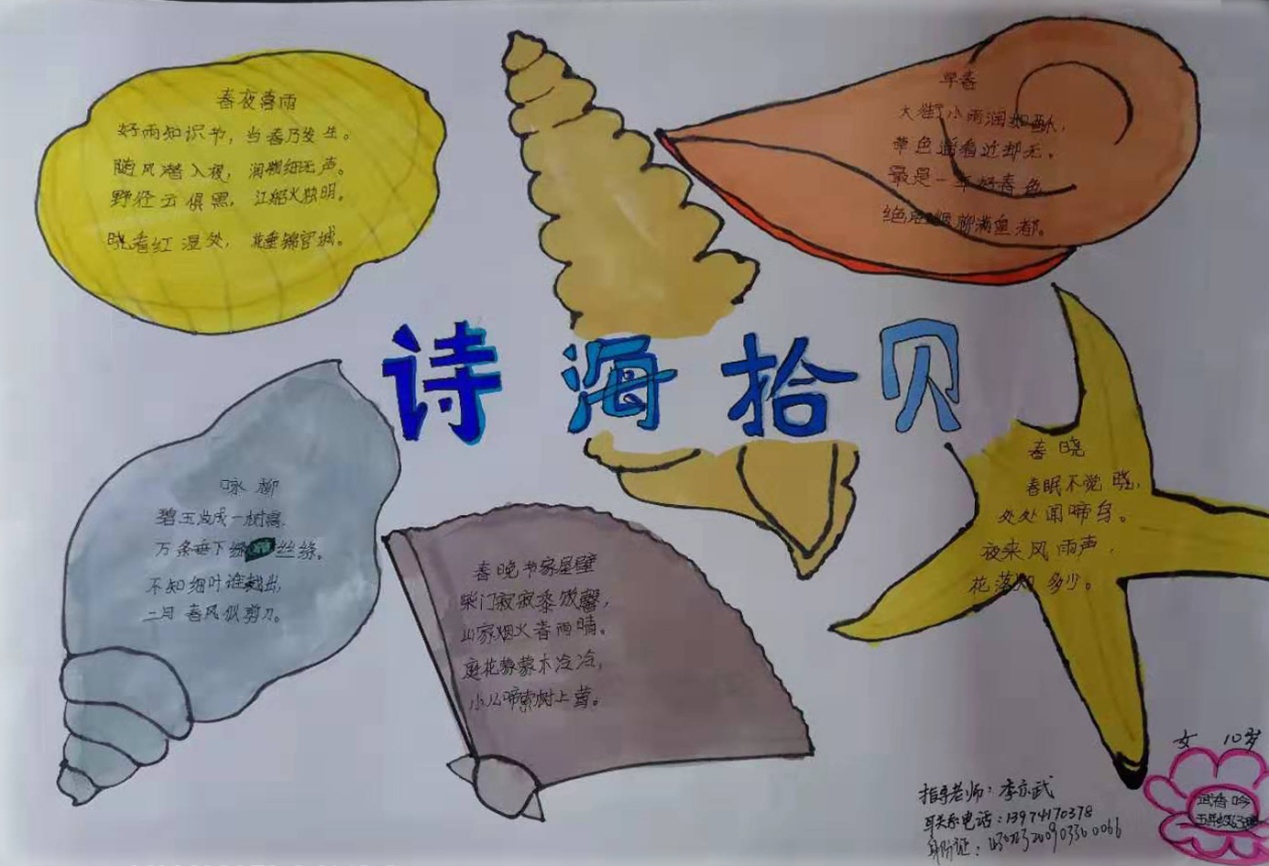 春夜喜雨
好雨知识节，当春乃发生。
随风潜入夜，润物细无声。
野径云俱黑，江船火独明。
晓看红湿处，花重锦官城。
早春
天街小雨润如酥，
草色遥看近却无。
最是一年好春色
绝 烟柳满皇都。
诗海拾贝
咏柳
碧玉妆成一树高，
万条垂下绿 丝绦。
不知细叶谁裁出，
二月春风似剪刀。
春晚书家屋壁
柴门寂寂黍饭馨，
山家烟火春雨晴。
庭花蒙蒙木冷冷，
小儿啼索树上莺。
春晓
春眠不觉晓，
处处闻啼鸟。
夜来风雨声，
花落知多少。
女 10岁
指导老师：李亦武
联系电话：13974170378
身份证：
武香吟